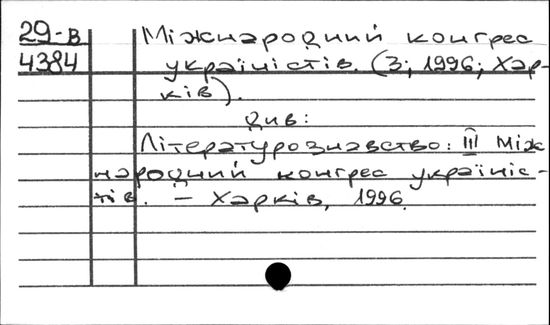 29-В Міжнародний конгрес
4384 україністів. (3; 1996; Хар-
ків).
див:
Літературознавство: III Між
народний конгрес україніс-
тів. – Харків, 1996.